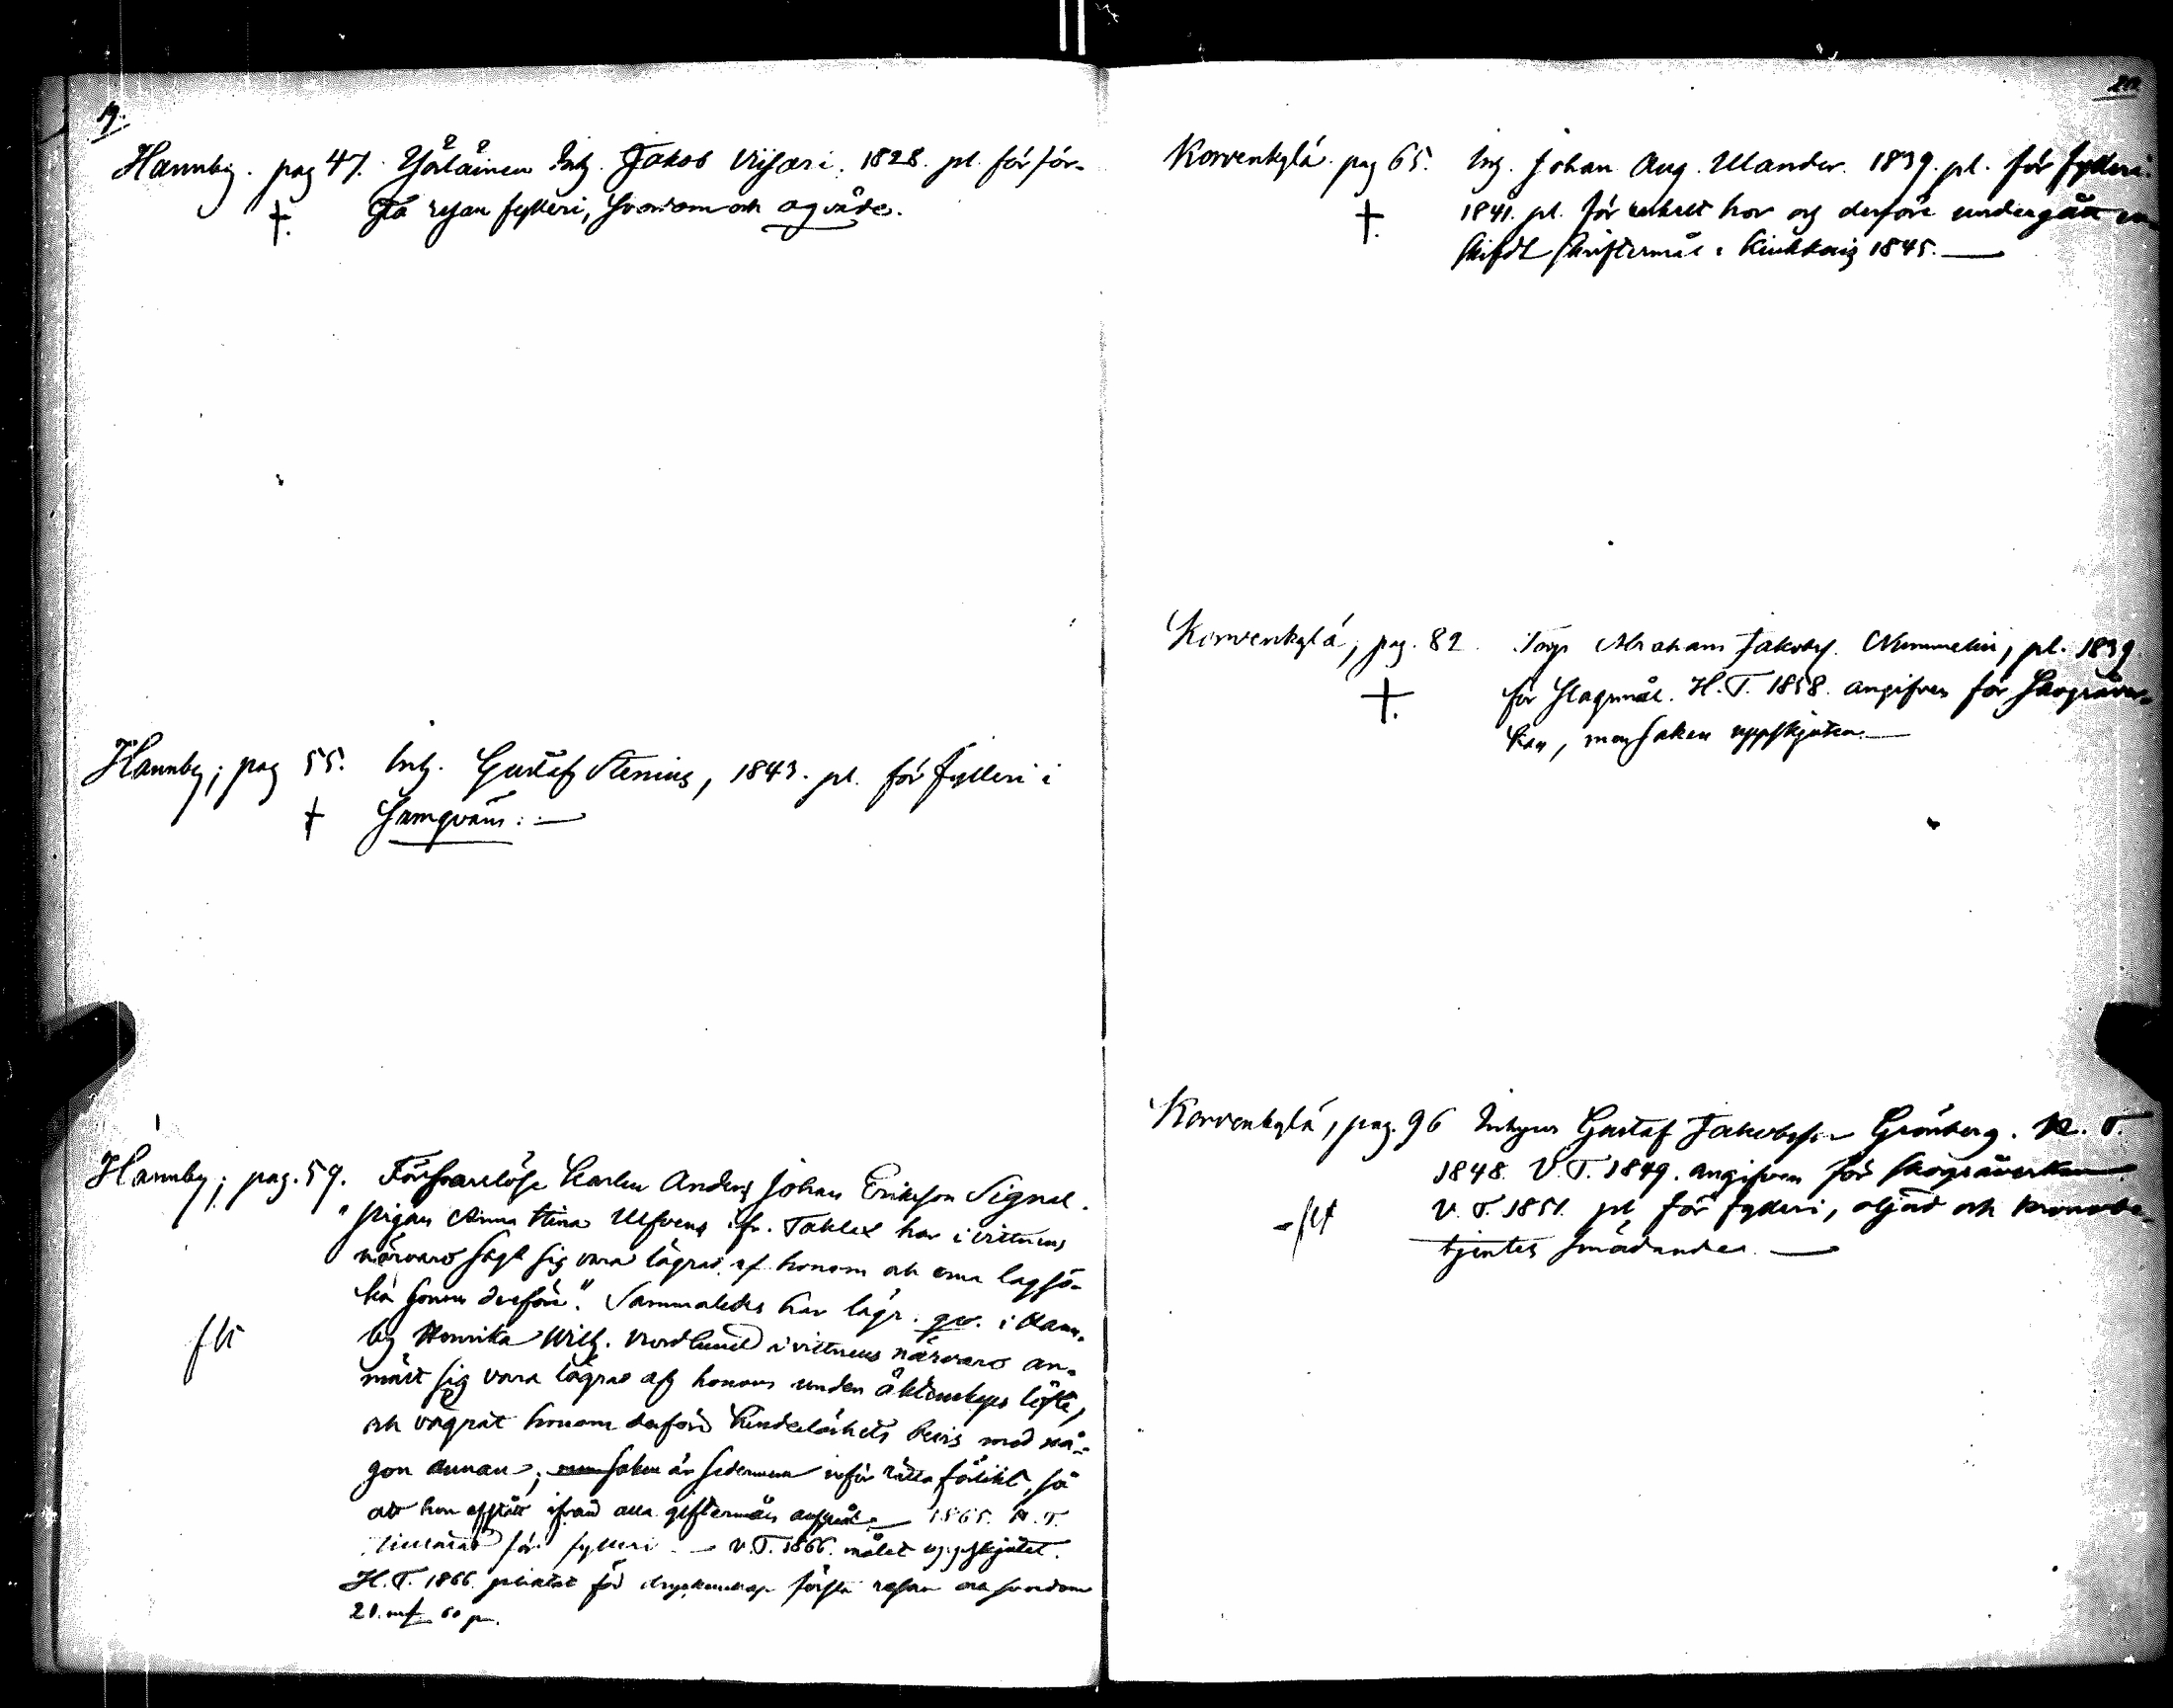 19.
Hannby. pag 47. Yötäinen Inh. Jakob Viisari. 1828. pl. för för-
†. sta resan fylleri, svordom och ogväde.
Hannby; pag 55. Inh. Gustaf Stenius, 1843. pl. för fylleri i
† hemqväm. —
Hannby; pag. 59. Försvarslöse Karlen Anders Johan Eriksson Signal.
"Pigan Anna Stina Ulfvens ifr. Taklex har i vittnens
närvaro sagt sig vara lägrad af honom och ema lagsö-
ka honom derföre". Sammaledes har lägr. qv. i Hann-
flt by Henrika Wilh. Nordlund i vittnens närvaro an-
mält sig vara lägrad af honom under äktenskaps löfte,
och vägrat honom derföre hinderlöshets bevis med nå-
gon annan; saken är sedermera inför rätta förlikt, så
att hon afstått ifrån alla giftermåls anspråk. — 1865. H.T.
för fylleri. — V.T. 1866. målet uppskjutet.
H.T. 1866. pliktat för dryckenskap första resan och svordom
21. mf 60 p.
20
Korvenkylä. pag 65. Inh. Johan Aug. Ulander. 1839. pl. för fylleri.
†. 1841. pl. för enkelt hor och derföre undergått en-
skildt skriftermål i Kiukkais 1845. —
Korvenkylä, pag. 82. Torp. Abraham Jakobss. Nummelin, pl. 1839
†. för slagsmål. H.T. 1858. angifven för skogsåver-
kan, men saken uppskjuten. —
Korvenkylä, pag. 96 Inhyses Gustaf Jakobsson Grönberg. H.T.
1848. V.T. 1849. angifven för skogsåverkan
- flt V.T. 1851. pl. för fylleri, oljud och kronobe-
tjentes smädande. —